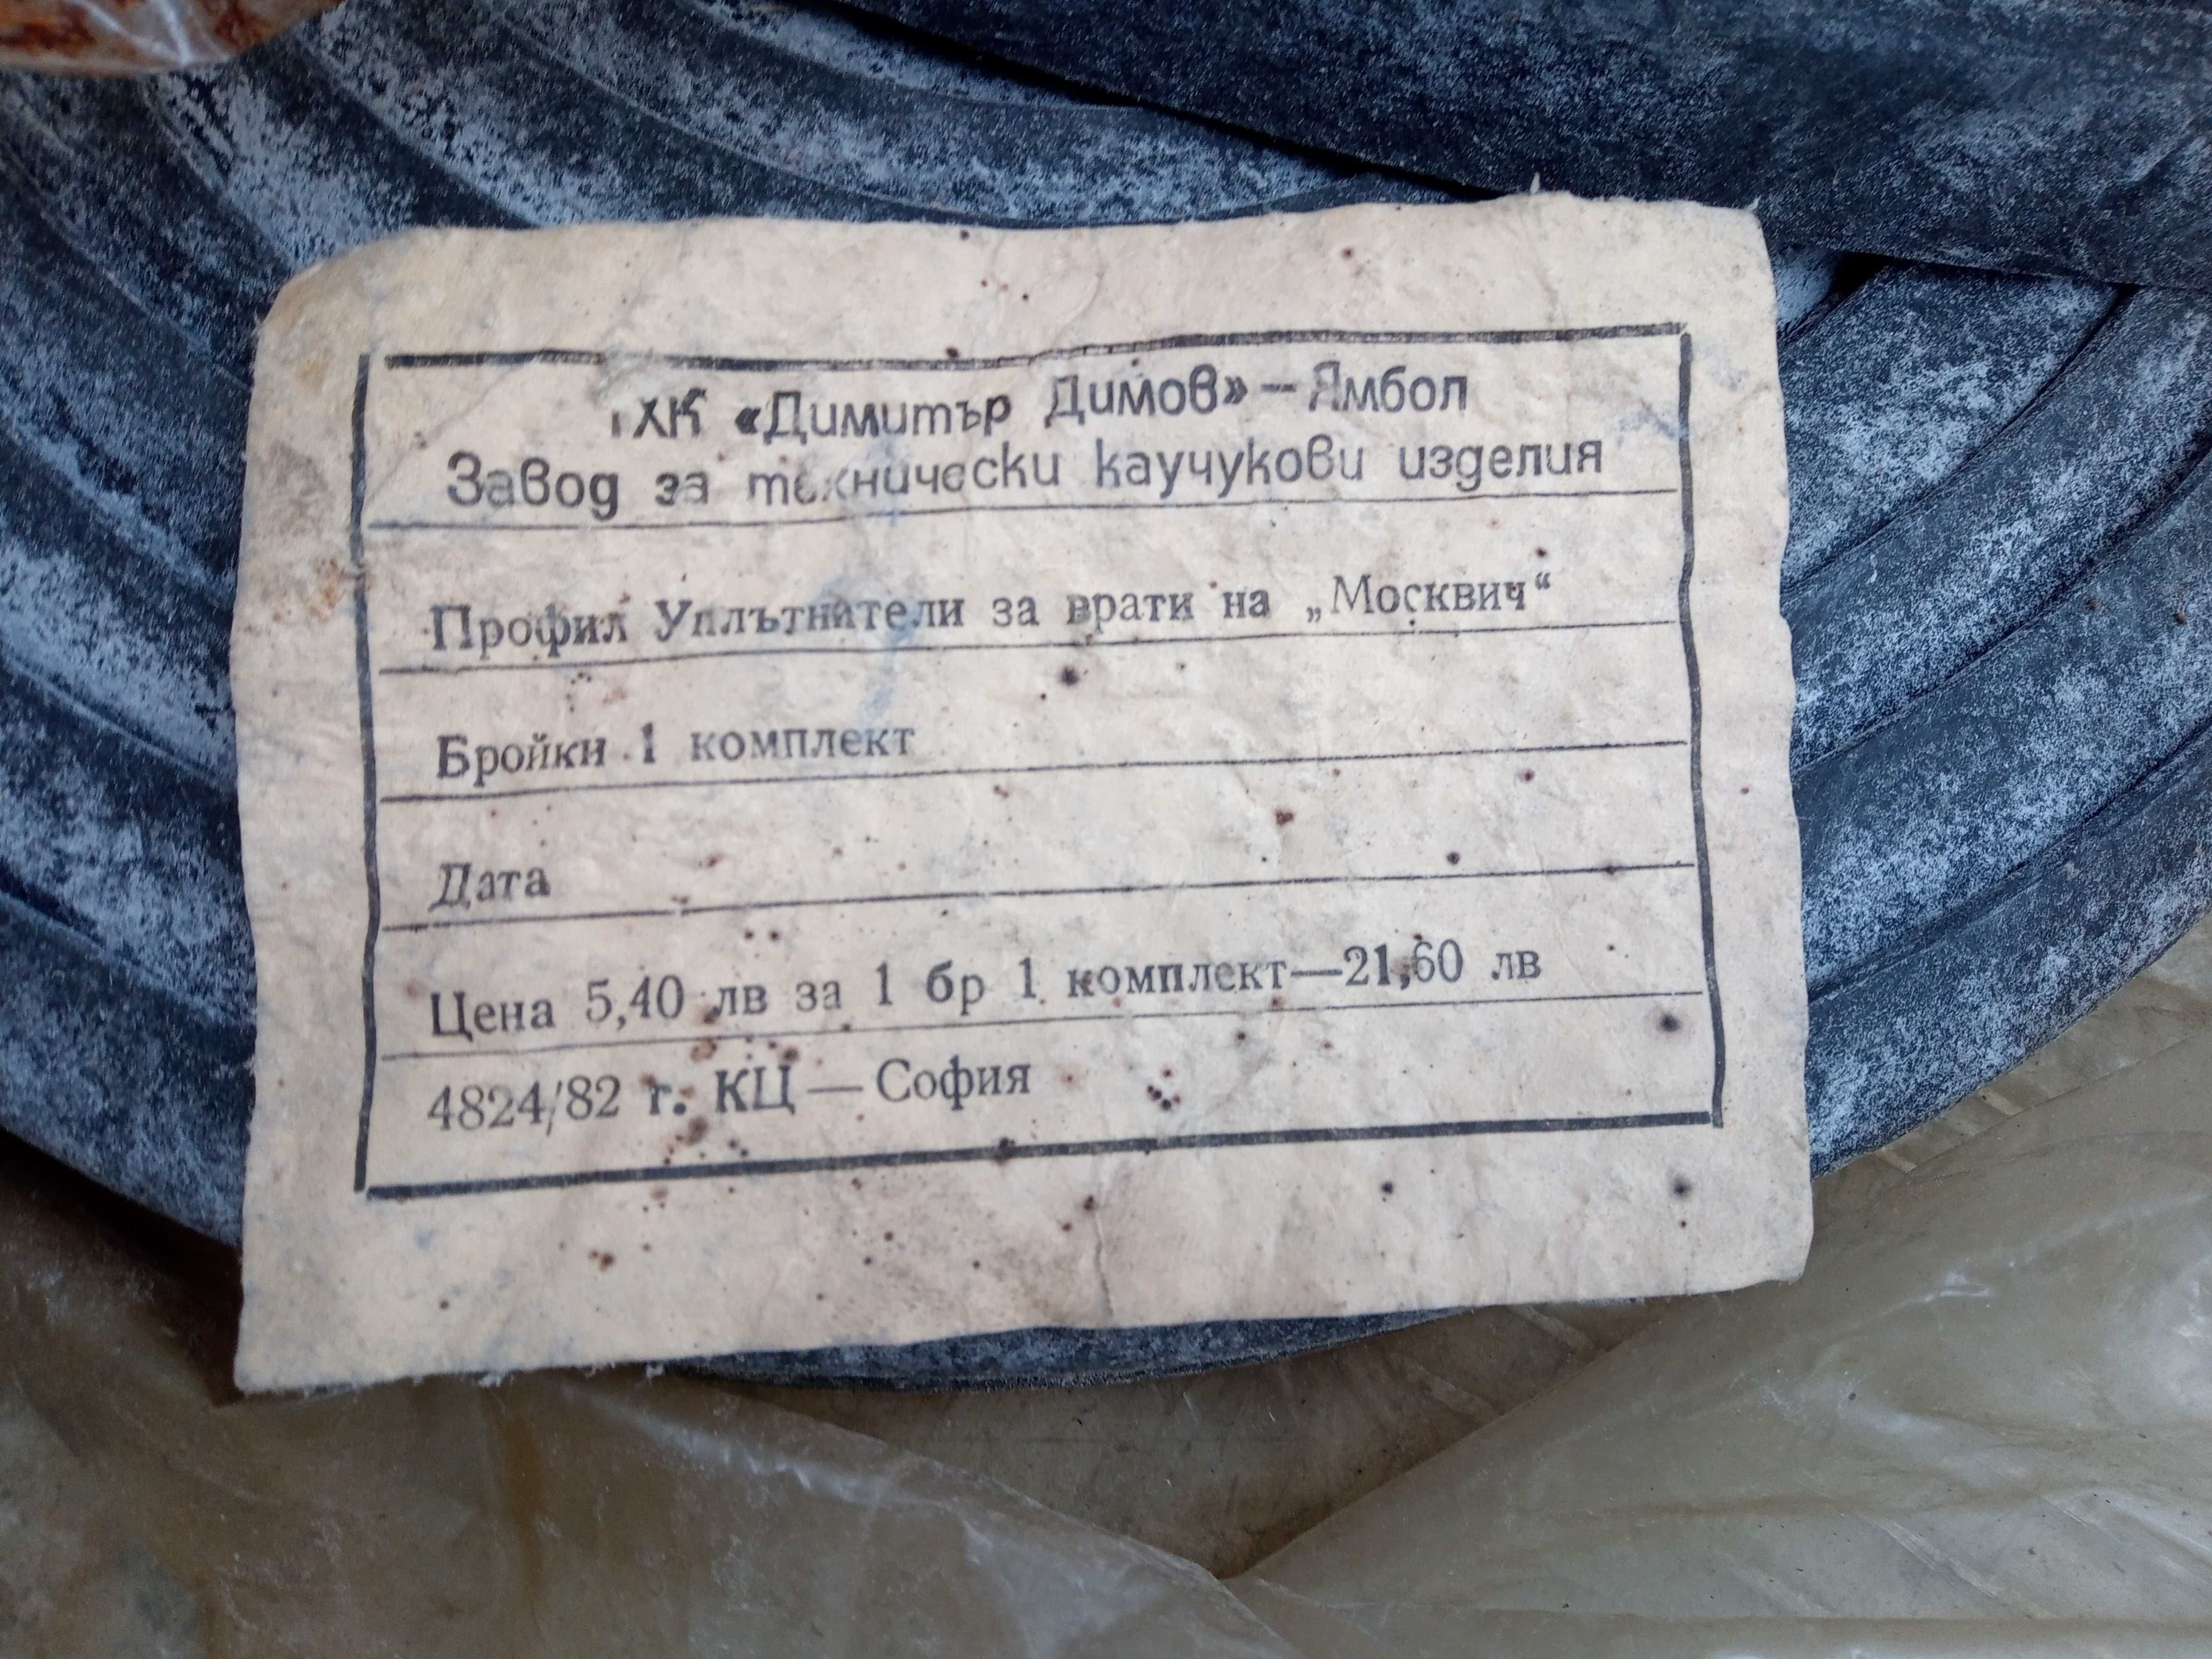 ТХК «Димитър Димов» — Ямбол
Завод за технически каучукови изделия
Профил Уплътнители за врати на „Москвич“
Бройки 1 комплект
Дата
Цена 5,40 лв за 1 бр 1 комплект—21,60 лв
4824/82 г. КЦ — София